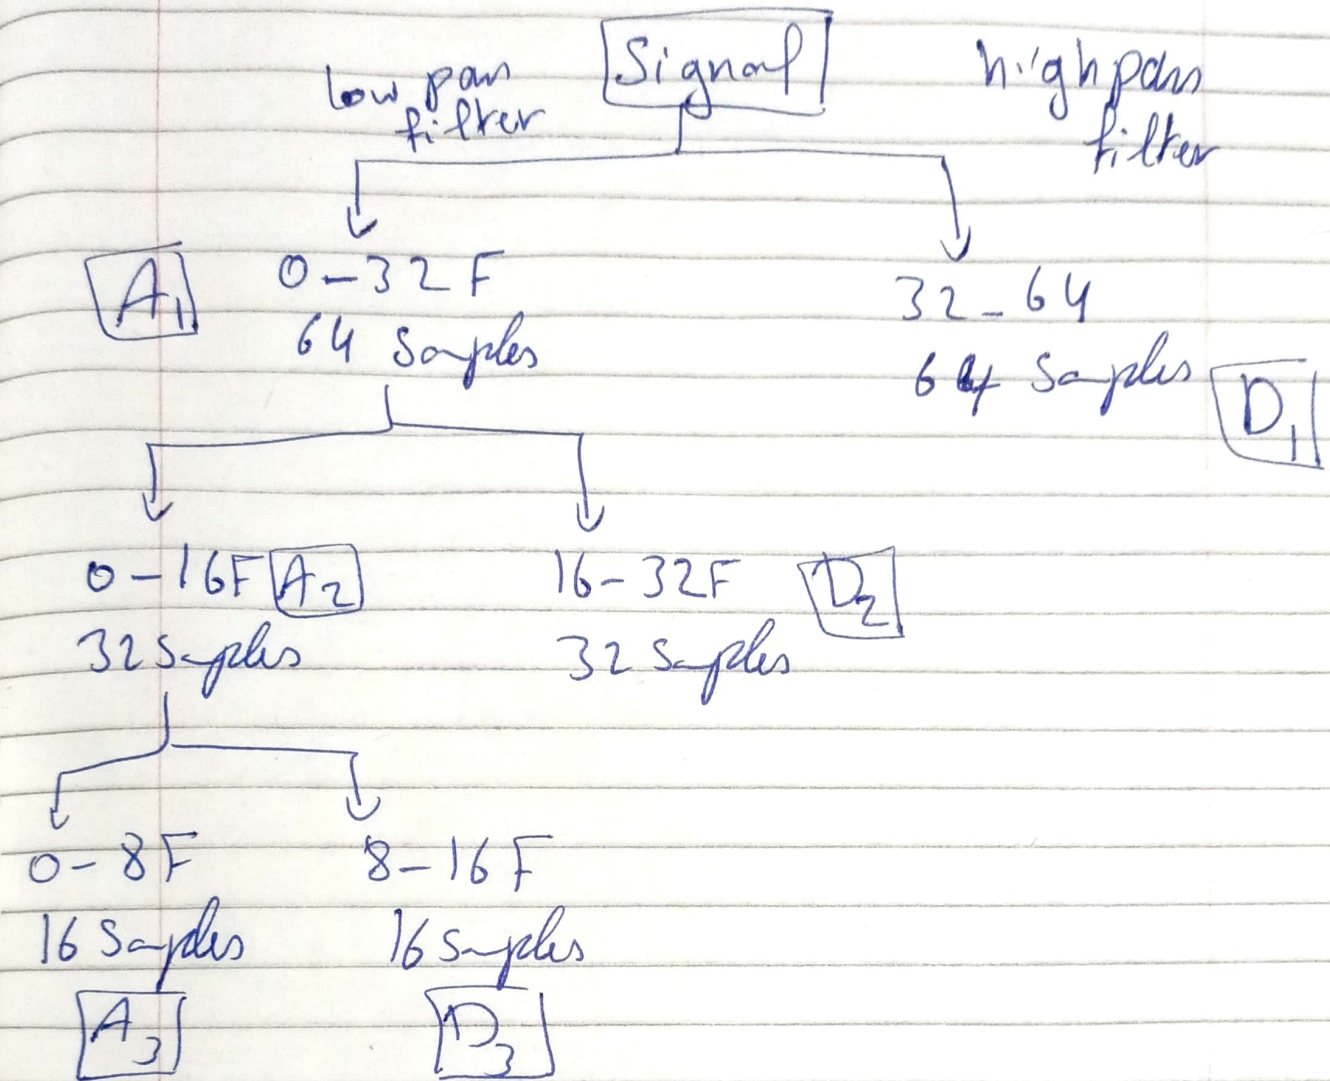 Signal
low pass
filter
high pass
filter
A1
0-32F
64 Samples
32-64
64 Samples
D1
0-16F
A2
32 Samples
16-32F
D2
32 Samples
0-8F
16 Samples
A3
8-16F
16 Samples
D3